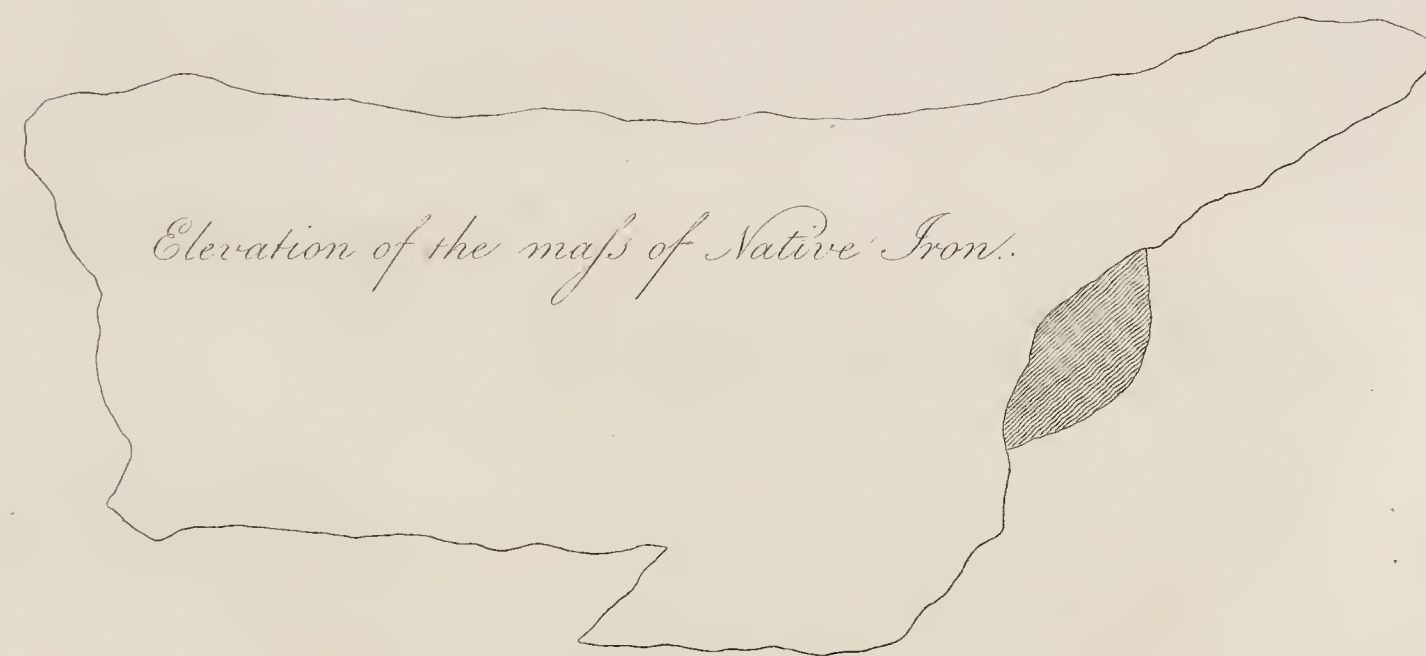 Elevation of the maſs of Native Iron.